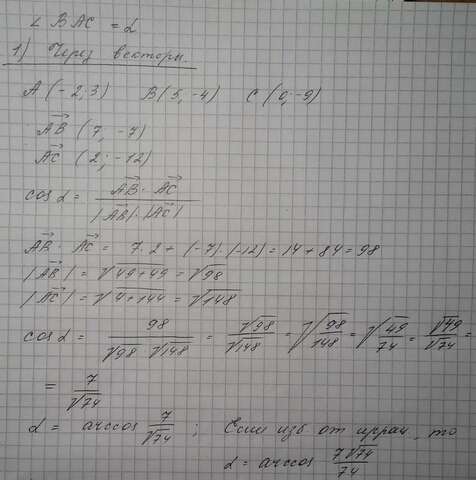 ∠ BAC = α
1) Через векторы.
A (-2; 3) B (5; -4) C (0; -9)
AB→ (7; -7)
AC→ (2; -12)
cos α = (AB→ · AC→) / (|AB→| · |AC→|)
AB→ · AC→ = 7·2 + (-7)·(-12) = 14 + 84 = 98
|AB→| = √(49+49) = √98
|AC→| = √(4+144) = √148
cos α = 98 / (√98 · √148) = √98 / √148 = √(98/148) = √(49/74) = √49 / √74 =
= 7/√74
α = arccos 7/√74 ; Если изб от иррац, то
α = arccos 7√74/74